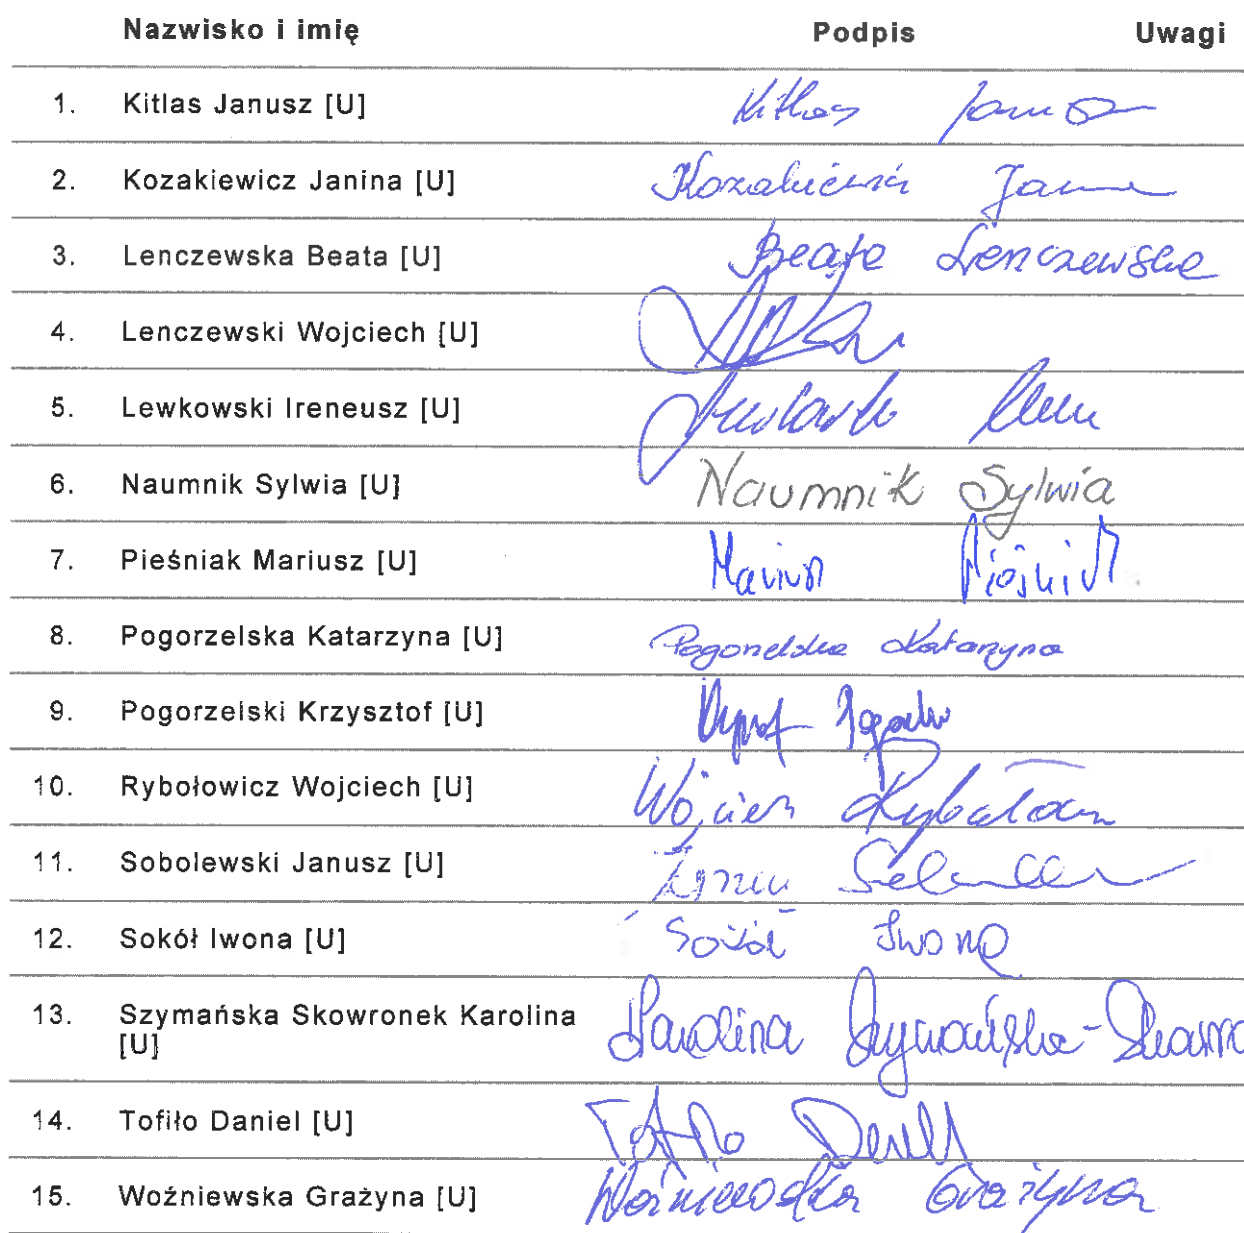 Nazwisko i imię Podpis Uwagi
1. Kitlas Janusz [U] Kitlas Janusz
2. Kozakiewicz Janina [U] Kozakiewicz Janina
3. Lenczewska Beata [U] Beata Lenczewska
4. Lenczewski Wojciech [U]
5. Lewkowski Ireneusz [U]
6. Naumnik Sylwia [U] Naumnik Sylwia
7. Pieśniak Mariusz [U] Mariusz Pieśniak
8. Pogorzelska Katarzyna [U] Pogorzelska Katarzyna
9. Pogorzelski Krzysztof [U]
10. Rybołowicz Wojciech [U] Wojciech Rybołowicz
11. Sobolewski Janusz [U]
12. Sokół Iwona [U] Sokół Iwona
13. Szymańska Skowronek Karolina Karolina Szymańska-Skowro
[U]
14. Tofiło Daniel [U] Tofiło Daniel
15. Woźniewska Grażyna [U] Woźniewska Grażyna